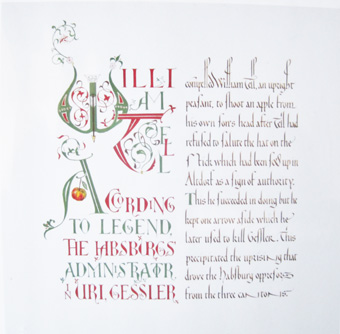 WILLI
AM
TELL
ACORDING
TO LEGEND,
THE HABSBURGS'
ADMINISTRATR.
IN URI, GESSLER,
compelled William Tell, an upright
peasant, to shoot an apple from
his own son's head after Tell had
refused to salute the hat on the
stick which had been set up in
Altdorf as a sign of authority.
This he succeeded in doing but he
kept one arrow aside which he
later used to kill Gessler. This
precipitated the uprising that
drove the Habsburg oppressors
from the three cantons.